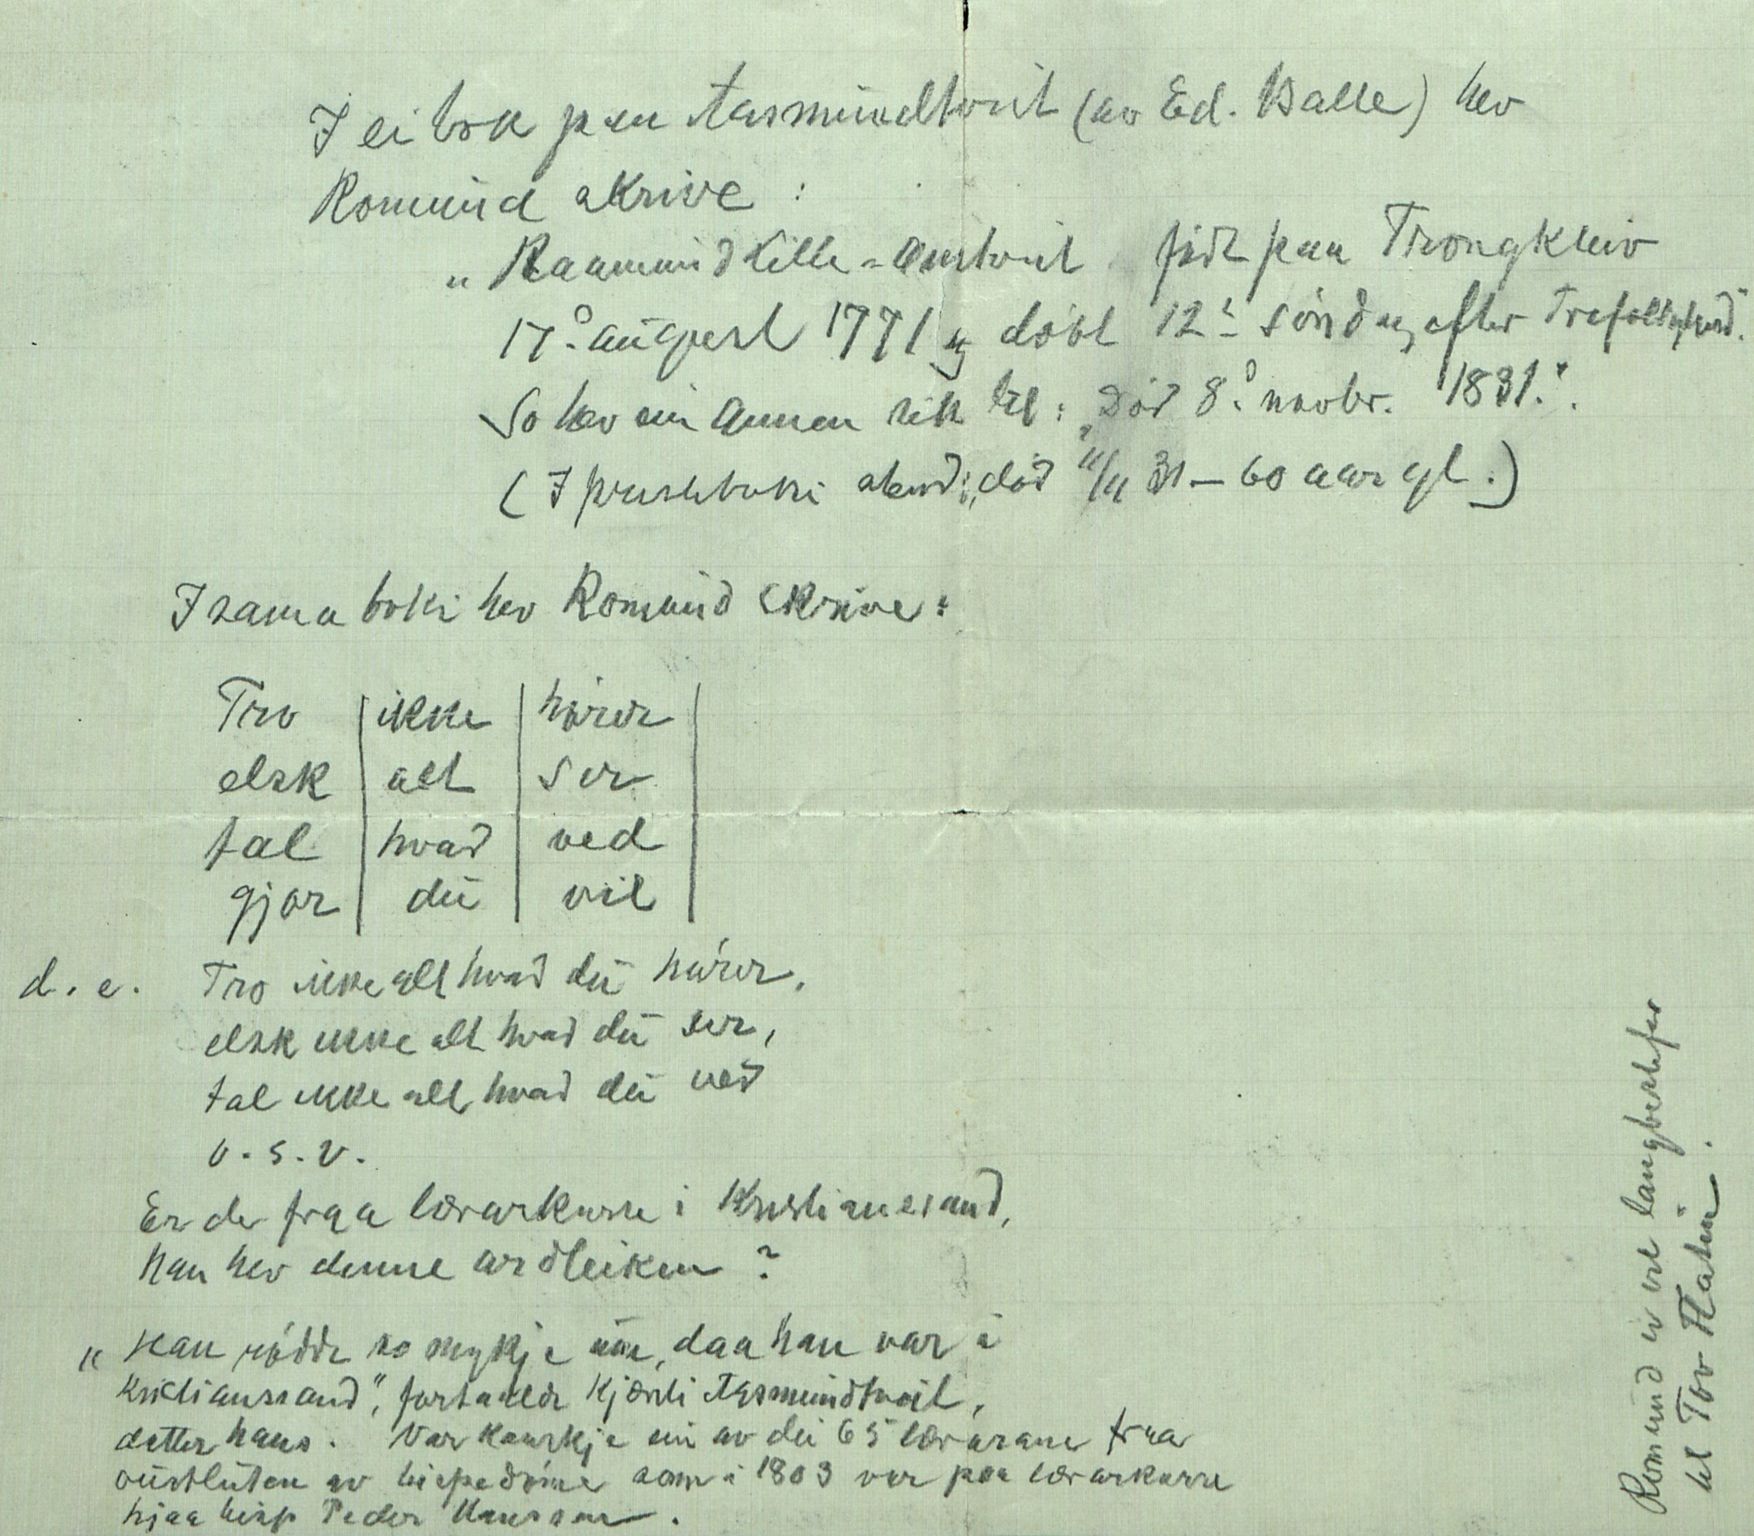 I ei bok paa Aasmundtveit (av Ed. Balle) hev
Romund skrive :
„ Raamund Lille-Omtveit født paa Trongkleiv
17. august 1771 og døbt 12te søndag efter Trefoldighed."
So hev ein annan sett til : „Død 8. novbr. 1831.".
(I presteboki stend: „død 11/11 31 – 60 aar gl.)
I sama boki hev Romund skrive :
Tro | ikke | hører |
elsk | alt | ser |
tal | hvad | ved |
gjør | du | vil |
d. e. Tro ikke alt hvad du hører,
elsk ikke alt hvad du ser,
tal ikke alt hvad du ved
o. s. v.
Er der fraa lærarkurse i Kristianssand,
han hev denne ordleiken ?
„ Han rødde so mykje um, daa han var i
Kristianssand", fortaalde Kjærsti Aasmundtveit,
dotter hans. Var kanskje ein av dei 65 lærarane fraa
austluten av bispedøme som i 1803 var paa lærarkurse
hjaa bisp Peder Hansen.
Romund er vel langbestefar
til Tov Flatin.